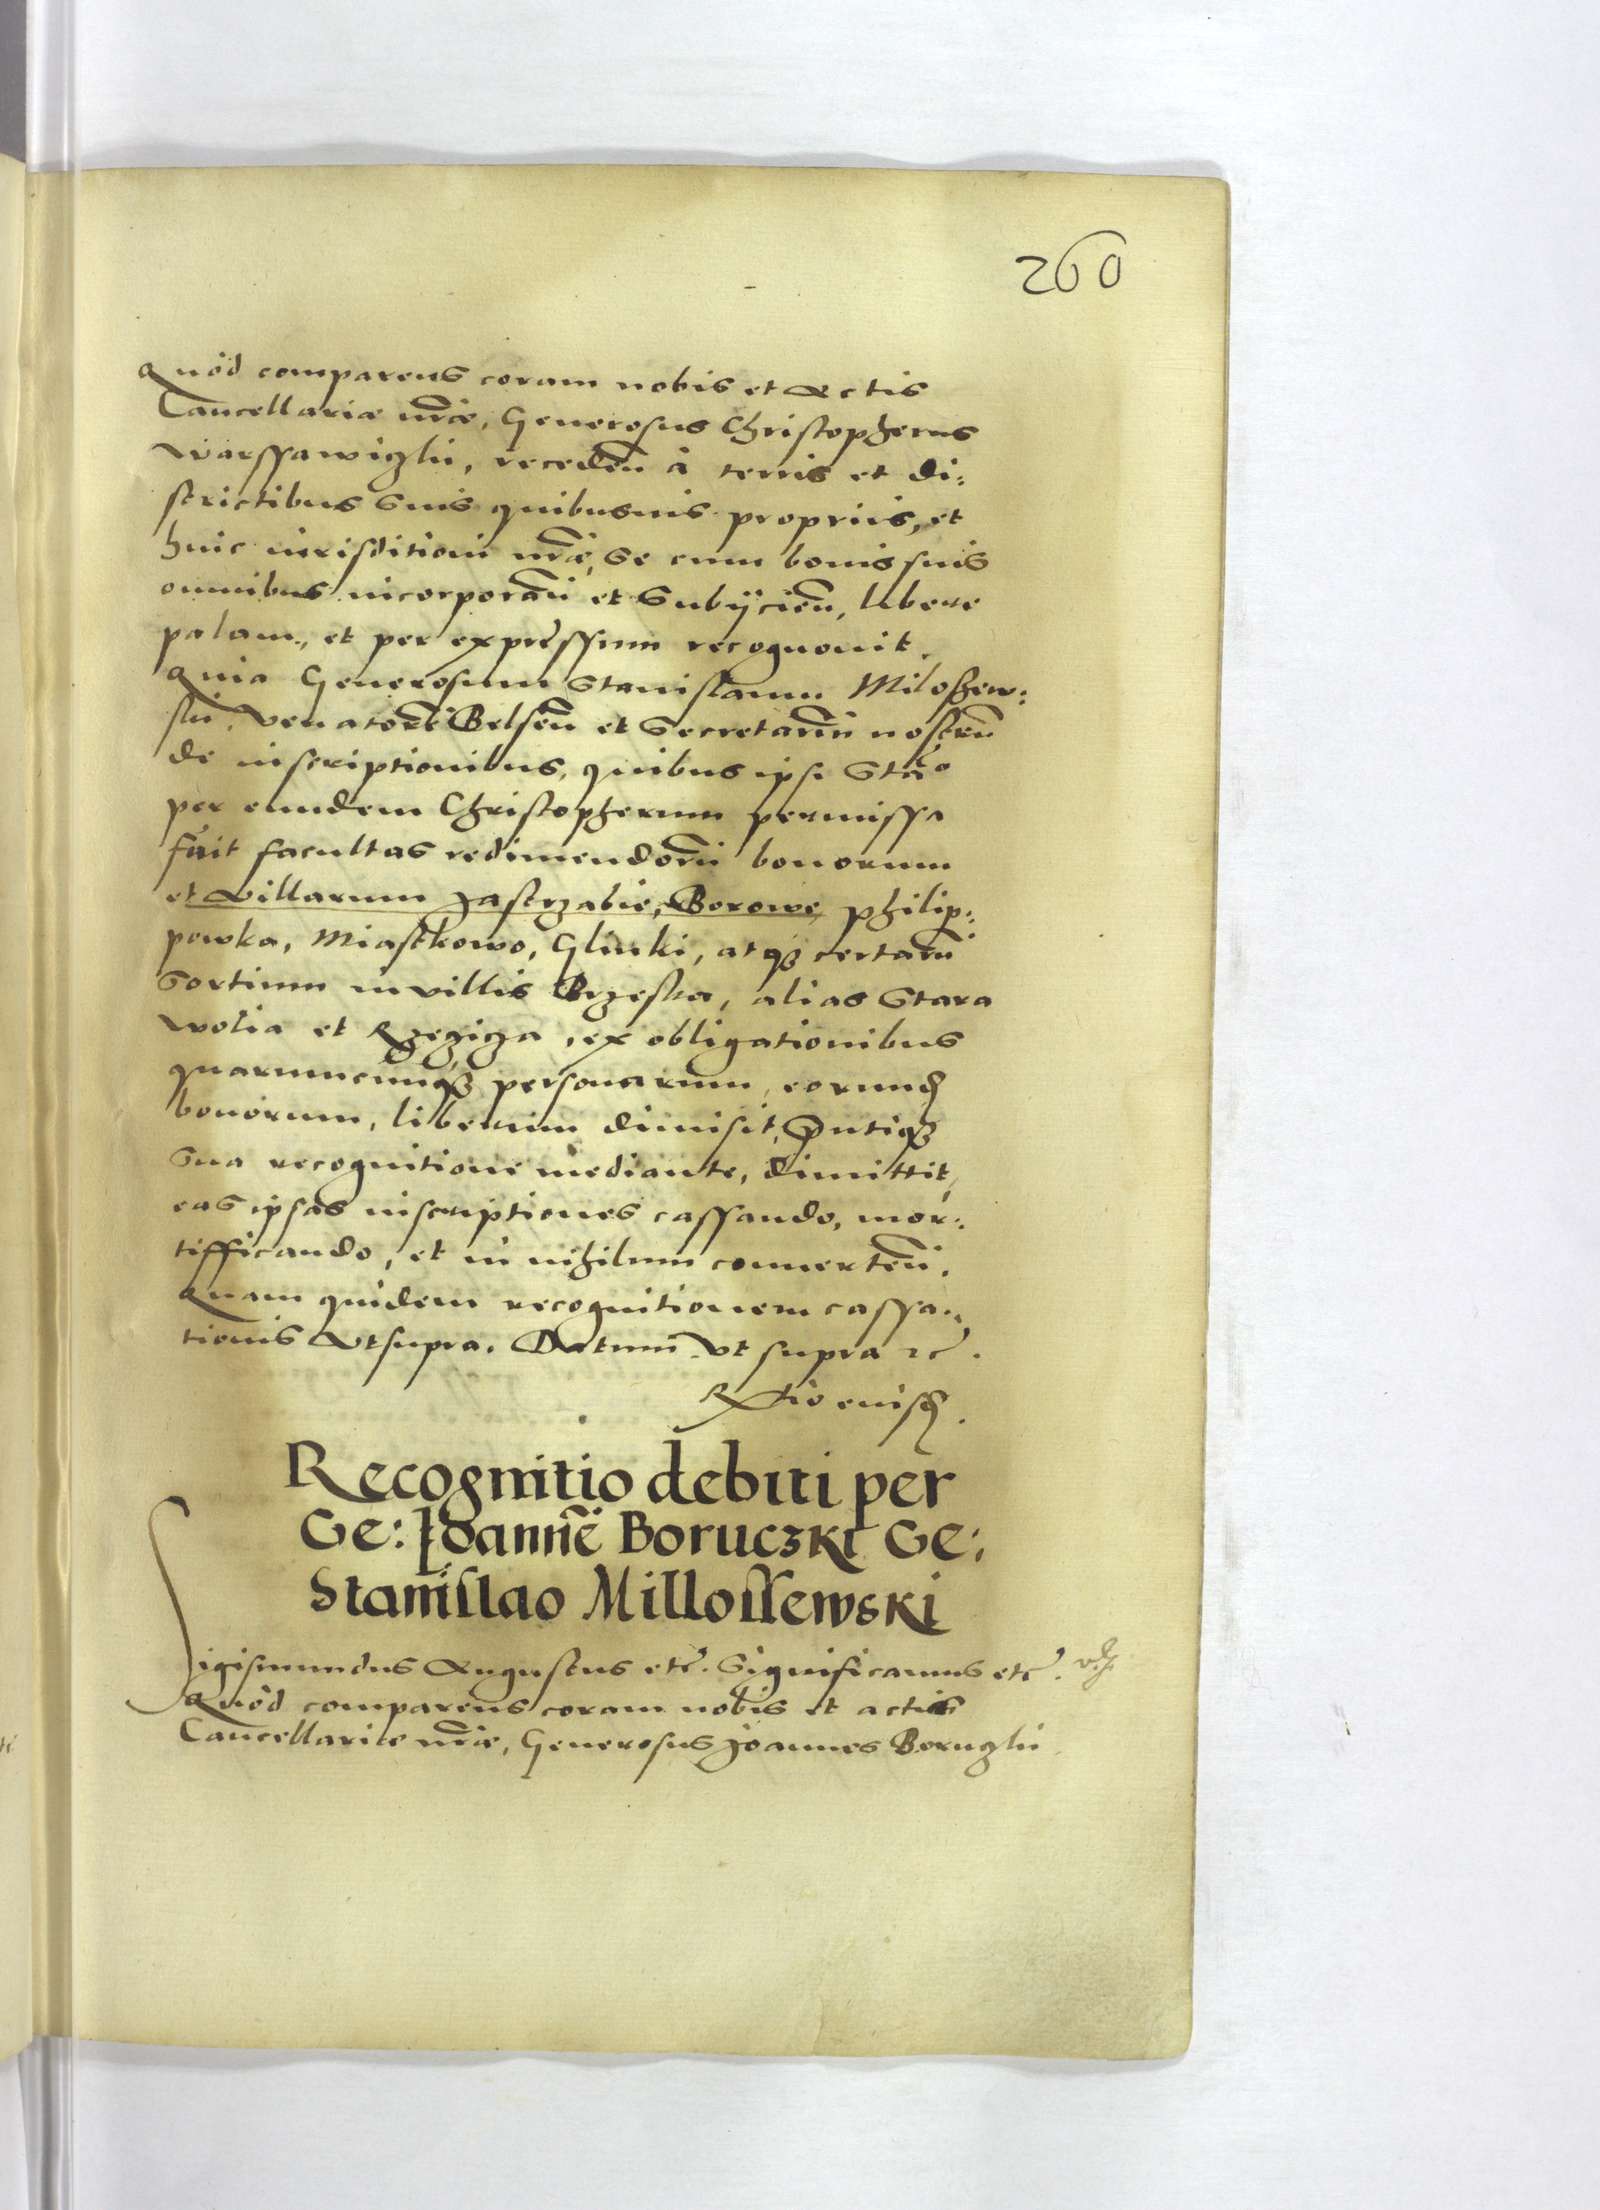 260
Quòd comparens coram nobis et Actis
Cancellariæ nr̃æ, Generosus Christopherus
Warssawiczki, receden̄ à terris et di:
strictibus suis quibusuis proprijs, et
huic iurisditioni nr̃æ, se cum bonis suis
omnibus incorporan̄ et subijcien̄, libere
palam, et per expressum recognouit.
Quia Generosum Stanislaum Miloszew:
ski, Venatorē Belsen̄ et Secretariū nostrū
de inscriptionibus, quibus ipsi Stão
per eundem Christopherum permissa
fuit facultas redimendorū bonorum
et Villarum Jastrzabie, Borowe, Philip:
powka, Miastkowo, Glinki, atq3 certarū
sortium in villis Brzeska, alias Stara
wolia et Rzeczicza, ex obligationibus
quarumcunq3 personarum, eorund
bonorum, liberum dimisit, p̃ntiq3
sua recognitione mediante, dimittit,
eas ipsas inscriptiones cassando, mor:
tifficando, et in nihilum conuerten̄.
Quam quidem recognitionem cassa:
tionis Vt supra. Datum Vt supra etc̃.
R̃tio eiusd.
Recognitio debiti per
Ge: Joannē Boruczki Ge:
Stanislao Millossewski
Sigismundus Augustus etc̃. Significamus etc̃.
Quòd comparens coram nobis et actis
Cancellariæ nr̃æ, Generosus Joannes Boruczki